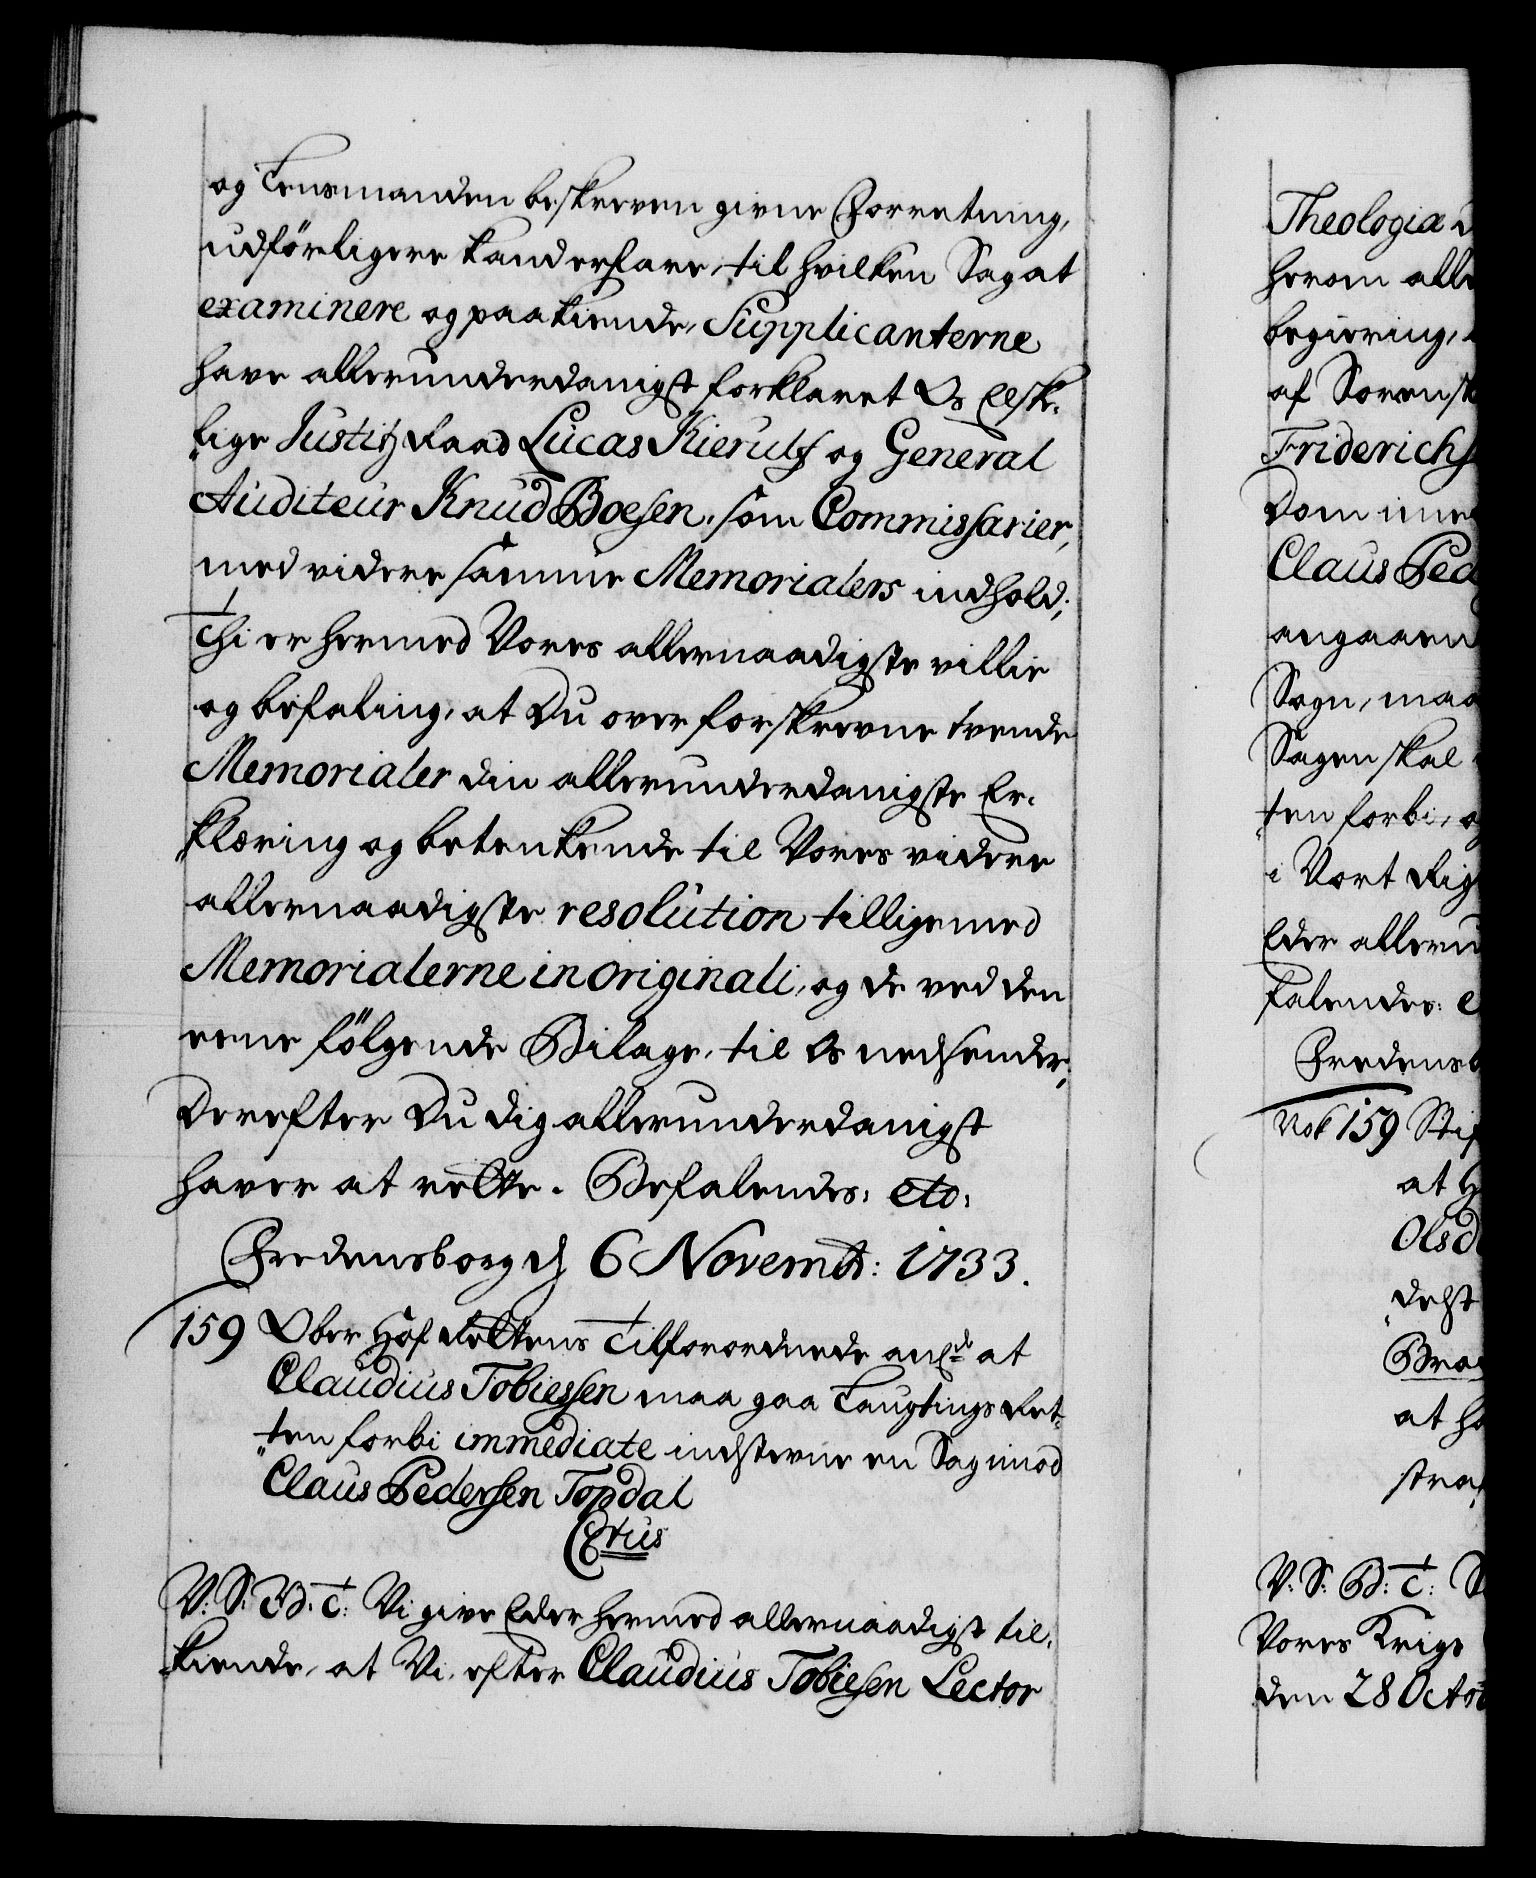 og Lensmanden beskreven givne Forretning,
udførligere kand erfare, til hvilken Sag at
examinere og paakiende, Supplicanterne
have allerunderdanigst forklaret Os Elsk-
lige Justitz Raad Lucas Kierulf og General
Auditeur Knud Boesen, som Commissarier,
med videre samme Memorialers indhold;
Thi er hermed Vores allernaadigste villie
og befaling, at Du over forskrevne tvende
Memorialer din allerunderdanigste Er-
klæring og betenkende til Vores videre
allernaadigste resolution tilligemed
Memorialerne in originali, og de ved den
eene følgende Bilage, til Os nedsender;
Derefter Du dig allerunderdanigst
haver at rette. Befalendes: etc:
Fredensborg d 6 Novembr: 1733.
159 Ober Hof Rettens Tilforordnede anl at
Claudius Tobiessen maa gaa Laugtings Ret-
ten forbi immediate indstevne en Sag imod
Claus Pedersen Topdal
Chr̃tus
V: S: G: T: Vi give Eder hermed allernaadigst til-
kiende, at Vi, efter Claudius Tobiesen Lector
Theologiæ
herom alle
begiering,
af Sørensk
Friderichs
Dom imel
Claus Ped
angaaen
Sogn, maa
Sagen skal
ten forbi, o
i Vort Rig
Eder alleru
falendes: e
Fredensb
No 159 Stif
at H
Ols d
delst
Bra
at ha
straf
V: S: G: T:
Vores Krigs
den 28 Octob